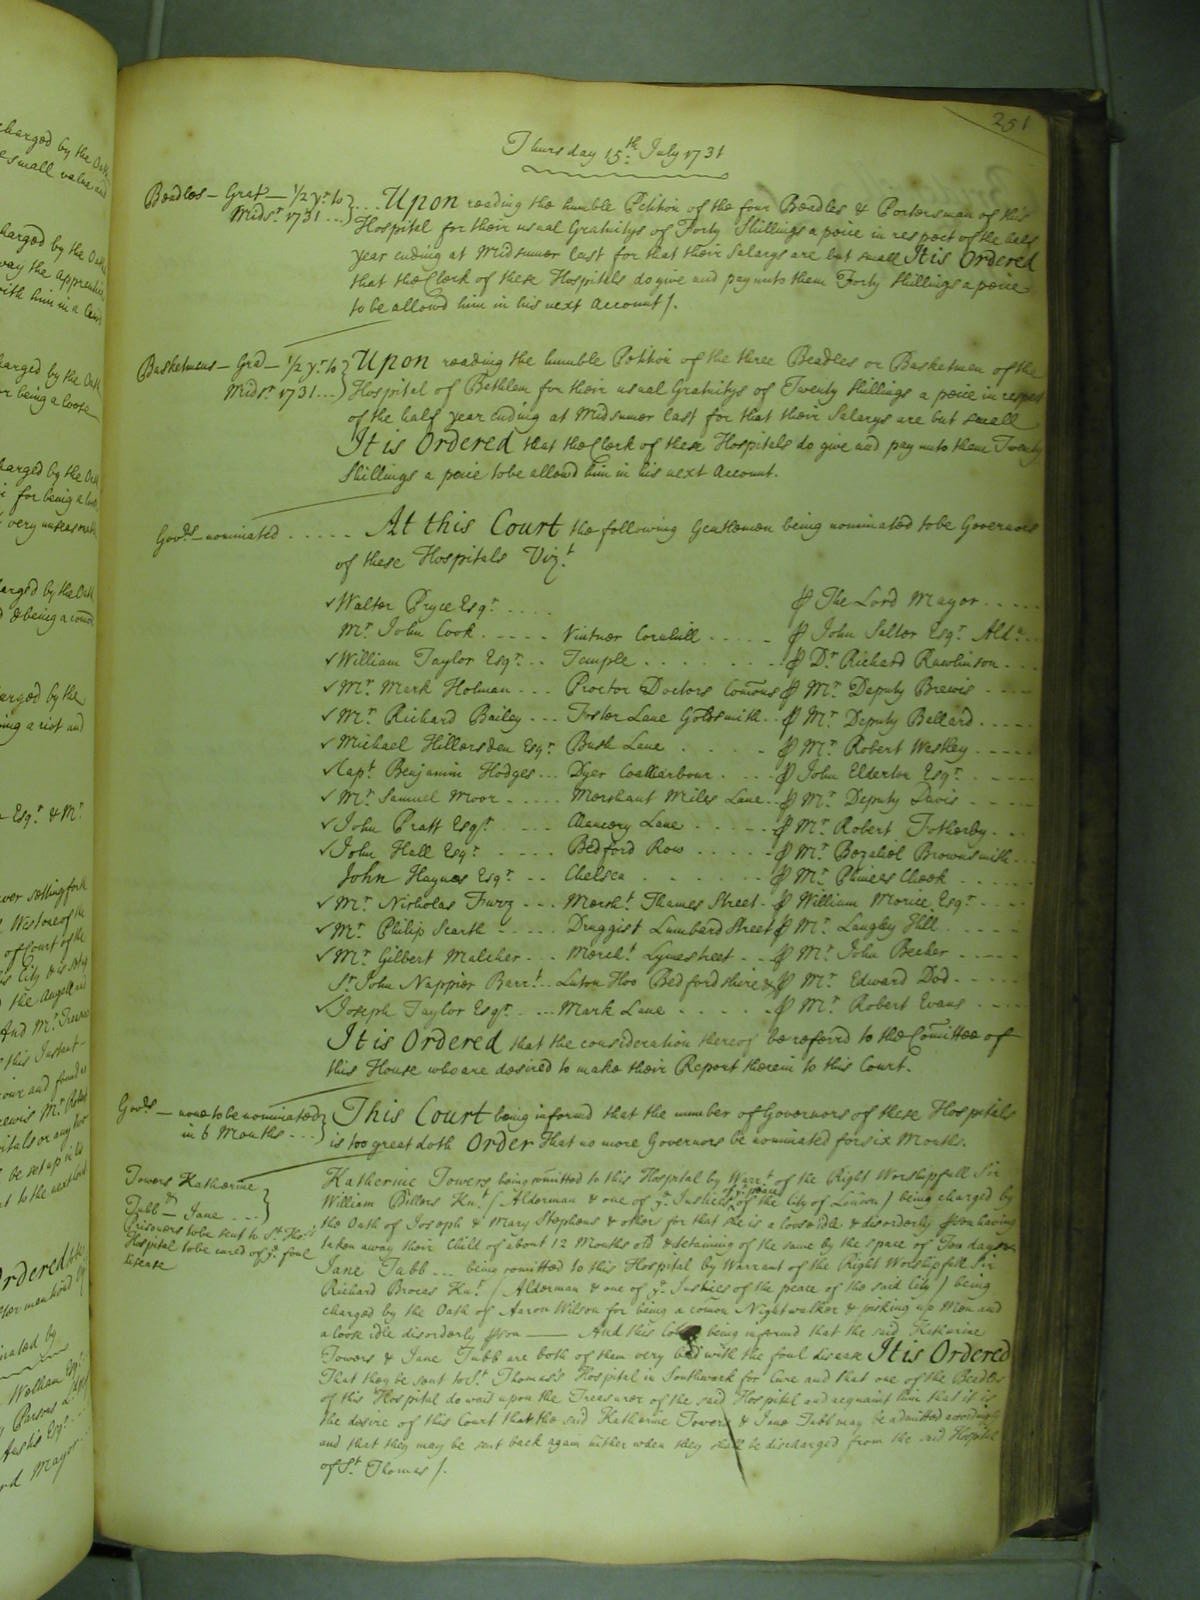 251
Thursday 15th July 1731
Beadles – Grat – 1/2 yr to
Midsr 1731 ...
Upon reading the humble Petition of the four Beadles & Porters man of this
Hospital for their usual Gratuitys of Forty Shillings a peice in respect of the half
year ending at Midsumer last for that their Salarys are but small It is Ordered
that the Clerk of these Hospitals do give and pay unto them Forty Shillings a peice
to be allowd him in his next Account /.
Basketmens – Grad – 1/2 yr to
Midsr 1731 ...
Upon reading the humble Petition of the three Beadles or Basketmen of the
Hospital of Bethlem for their usual Gratuitys of Twenty Shillings a peice in respect
of the half year Ending at Midsumer last for that their Salarys are but small
It is Ordered that the Clerk of these Hospitals do give and pay unto them Twenty
Shillings a peice to be allowd him in his next Account.
Govrs – nominated .....
At this Court the following Gentlemen being nominated to be Governors
of these Hospitals Vizt
Walter Pryce Esqr .... ⅌ The Lord Mayor .....
Mr John Cook ..... Vintner Cornhill ..... ⅌ John Salter Esqr Aldr ..
William Taylor Esqr .. Temple ....... ⅌ Dr Richard Rawlinson ...
Mr Mark Holman ... Proctor Doctors Comons ⅌ Mr Deputy Brewis ....
Mr Richard Bailey ... Foster Lane Goldsmith .. ⅌ Mr Deputy Bellard .....
Michael Hillersden Esqr Bush Lane .... ⅌ Mr Robert Westley .....
Capt Benjamin Hodges ... Dyer Coalharbour .... ⅌ John Elderton Esqr ....
Mr Samuel Moor ..... Merchant Miles Lane .. ⅌ Mr Deputy Davis ....
John Pratt Esqr .... Chancery Lane ..... ⅌ Mr Robert Fotherby ...
John Hall Esqr ..... Bedford Row ..... ⅌ Mr Bezaliel Brownsmith ..
John Haynes Esqr .. Chelsea ...... ⅌ Mr Cheek .....
Mr Nicholas ... Mercht Thames Street . ⅌ William Morice Esqr ....
Mr Philip Scarth ..... Druggist Lumbard Street ⅌ Mr Langley Hill .....
Mr Gilbert Malcher ... Mercht Lymestreet .. ⅌ Mr John Becher ....
Sr John Nappier Barrt .. Luton Hoo Bedfordshire ⅌ Mr Edward Dod .....
Joseph Taylor Esqr .... Mark Lane ..... ⅌ Mr Robert Evans ....
It is Ordered that the consideration thereof be referrd to the Comittee of
this House who are desired to make their Report therein to this Court.
Govrs – none to be nominated
in 6 Months ...
This Court being informd that the number of Governors of these Hospitals
is too great doth Order That no more Governors be nominated for six Months.
Towers Katherine
&
Tubb – Jane ...
Prisoners to be sent to St Thos
Hospital to be cured of ye foul
disease
Katherine Towers being comitted to this Hospital by Warrt of the Right Worshipfull Sir
William Billers Knt / Alderman & one of ye Justices of ye peace of the City of London / being charged by
the Oath of Joseph & Mary Stephens & others for that she is a loose idle & disorderly ⅌son having
taken away their Child of about 12 Months old & detaining of the same by the space of Ten days
Jane Tubb ... being comitted to this Hospital by Warrant of the Right Worshipfull Sir
Richard Brocas Knt / Alderman & one of ye Justices of the peace of the said City / being
charged by the Oath of Aaron Wilson for being a comon Nightwalker & picking up Men and
a loose idle disorderly ⅌son —— And this Court being informd that the said Katherine
Towers & Jane Tubb are both of them very bad with the foul disease It is Ordered
That they be sent to St Thomas's Hospital in Southwark for Cure and that one of the Beadles
of this Hospital do wait upon the Treasurer of the said Hospital and acquaint him that it is
the desire of this Court that the said Katherine Towers & Jane Tubb may be admitted accordingly
and that they may be sent back again hither when they shall be discharged from the said Hospital
of St Thomas /.